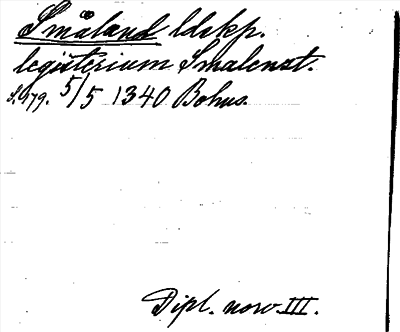 Småland ldskp.
legisterium Smalenst.
s. 179. 5/5 1340 Bohus.
Dipl. norv. III.